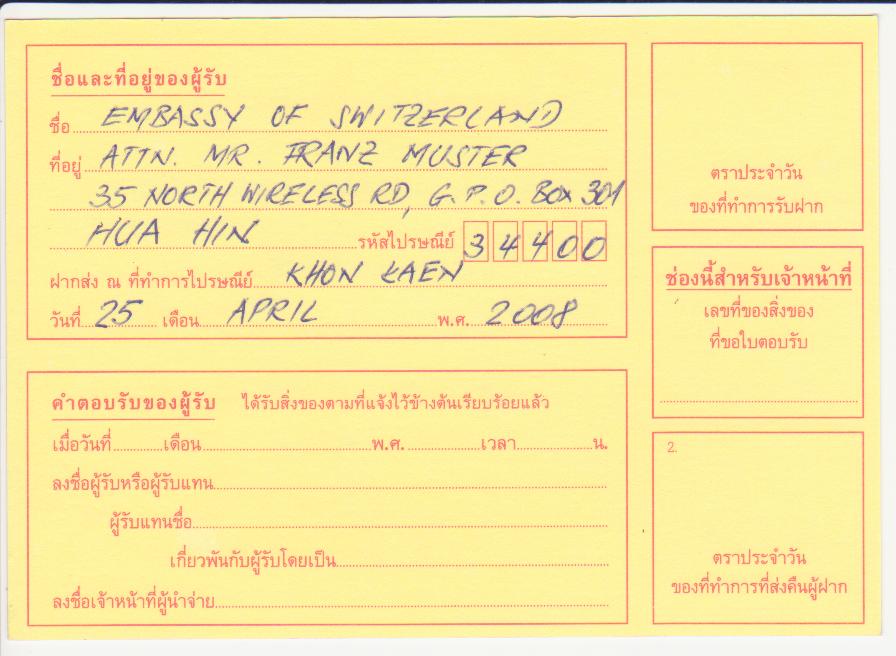 ชื่อและที่อยู่ของผู้รับ
ชื่อ EMBASSY OF SWITZERLAND
ที่อยู่ ATTN. MR. FRANZ MUSTER
35 NORTH WIRELESS RD, G.P.O. BOX 301
HUA HIN รหัสไปรษณีย์ 34400
ฝากส่ง ณ ที่ทำการไปรษณีย์ KHON KAEN
วันที่ 25 เดือน APRIL พ.ศ. 2008
คำตอบรับของผู้รับ ได้รับสิ่งของตามที่แจ้งไว้ข้างต้นเรียบร้อยแล้ว
เมื่อวันที่ เดือน พ.ศ. เวลา น.
ลงชื่อผู้รับหรือผู้รับแทน
ผู้รับแทนชื่อ
เกี่ยวพันกับผู้รับโดยเป็น
ลงชื่อเจ้าหน้าที่ผู้นำจ่าย
ตราประจำวัน
ของที่ทำการรับฝาก
ช่องนี้สำหรับเจ้าหน้าที่
เลขที่ของสิ่งของ
ที่ขอใบตอบรับ
2.
ตราประจำวัน
ของที่ทำการที่ส่งคืนผู้ฝาก